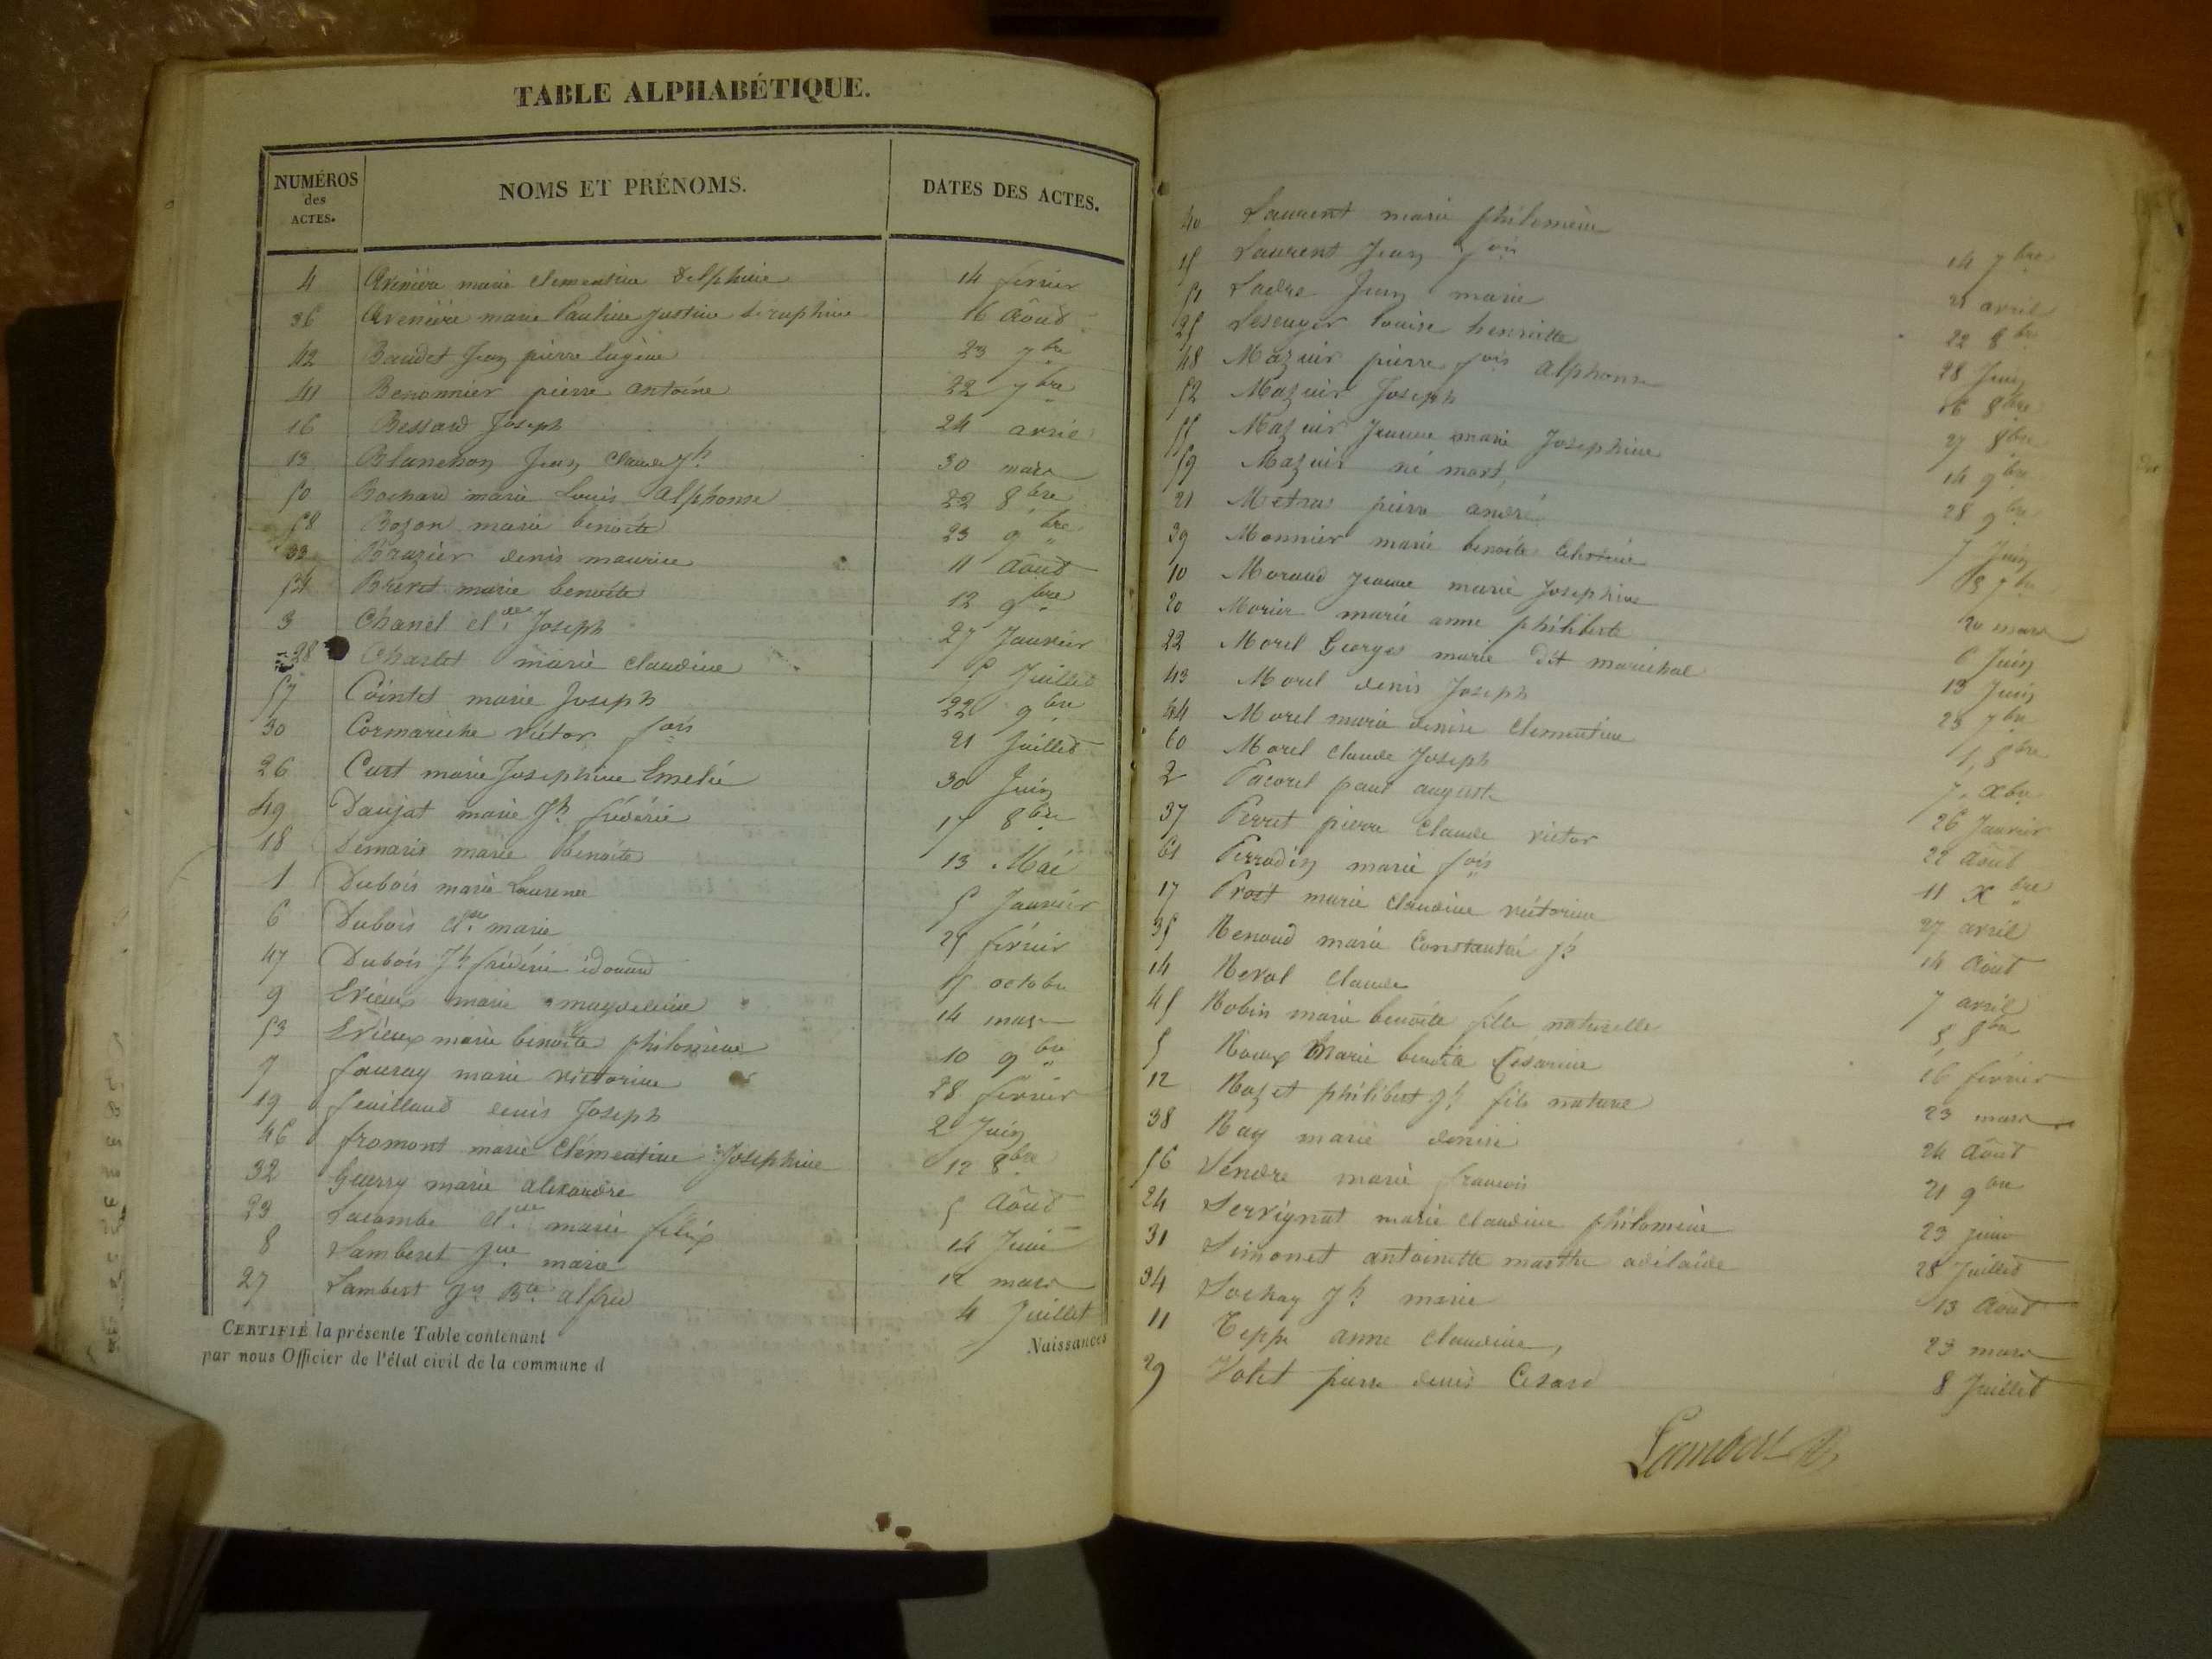 TABLE ALPHABÉTIQUE.
NUMÉROS des ACTES. NOMS ET PRÉNOMS. DATES DES ACTES.
4 Avenière marie clementine delphine 14 fevrier
36 Avenière marie Pauline justine séraphine 16 Août
42 Baudet Jean pierre Eugène 23 7bre
41 Benonnier pierre antoine 22 7bre
16 Bessard Joseph 24 avril
13 Blanchon Jean Claude Jh 30 mars
50 Bochard marie Louis Alphonse 22 8bre
58 Bozon marie benoite 23 9bre
33 Brazier denis maurice 11 Août
54 Brunet marie benoite 12 9bre
3 Chanel Cl.de Joseph 27 Janvier
28 Charlet marie claudine 5 Juillet
57 Cointet marie Joseph 22 9bre
30 Cormarèche victor fois 21 Juillet
26 Curt marie Josephine Emelie 30 Juin
49 Daujat marie Jh fréderic 17 8bre
18 Demaris marie benoite 13 Mai
1 Dubois marie Laurence 5 Janvier
6 Dubois Cl.de marie 25 fevrier
47 Dubois Jh fréderic édouard 15 octobre
9 Evieux marie magdeleine 14 mars
53 Evieux marie benoite philomène 10 9bre
7 fauray marie victorine 28 fevrier
19 feuilland denis Joseph 2 Juin
46 fromont marie Clémentine Josephine 12 8bre
32 Guerry marie alexandre 5 Août
23 Lacombe Cl.de marie félix 14 Juin
8 Lamberet Jne marie 12 mars
27 Lambert Jn Bte alfred 4 Juillet
CERTIFIÉ la présente Table contenant Naissances
par nous Officier de l'état civil de la commune d
40 Laurent marie philomène 14 7bre
15 Laurent Jean fois 21 avril
51 Jean marie 22 8bre
25 louise henriette 28 Juin
48 Mazuir pierre fois alphonse 16 8bre
52 Mazuir Joseph 27 8bre
55 Mazuir Jeanne marie Josephine 14 9bre
59 Mazuir né mort 28 9bre
21 Metras pierre andré 7 Juin
39 Monnier marie benoite 13 7bre
10 Morand Jeanne marie Josephine 20 mars
20 Morier marie anne philiberte 6 Juin
22 Morel Georges marie dit maréchal 13 Juin
43 Morel denis Joseph 25 7bre
44 Morel marie denise clementine 1, 8bre
60 Morel claude Joseph 7, Xbre
2 Pacorel paul auguste 26 Janvier
37 Perret pierre claude victor 22 Août
61 Perrodin marie fois 11 Xbre
17 Prost marie claudine victorine 27 avril
35 Renoud marie Constantin Jh 14 Août
14 Reval claude 7 avril
45 Robin marie benoite fille naturelle 5, 8bre
5 Roux Marie benoite Césarine 16 fevrier
12 Rozet philibert Jh fils naturel 23 mars
38 Ray marie denise 24 Août
56 Sendre marie francois 21 9bre
24 Servignat marie claudine philomène 23 juin
31 Simonet antoinette marthe adélaïde 28 Juillet
34 Sochay Jh marie 13 Août
11 Teppe anne claudine, 23 mars
29 Volet pierre denis Césard 8 Juillet
Lambert